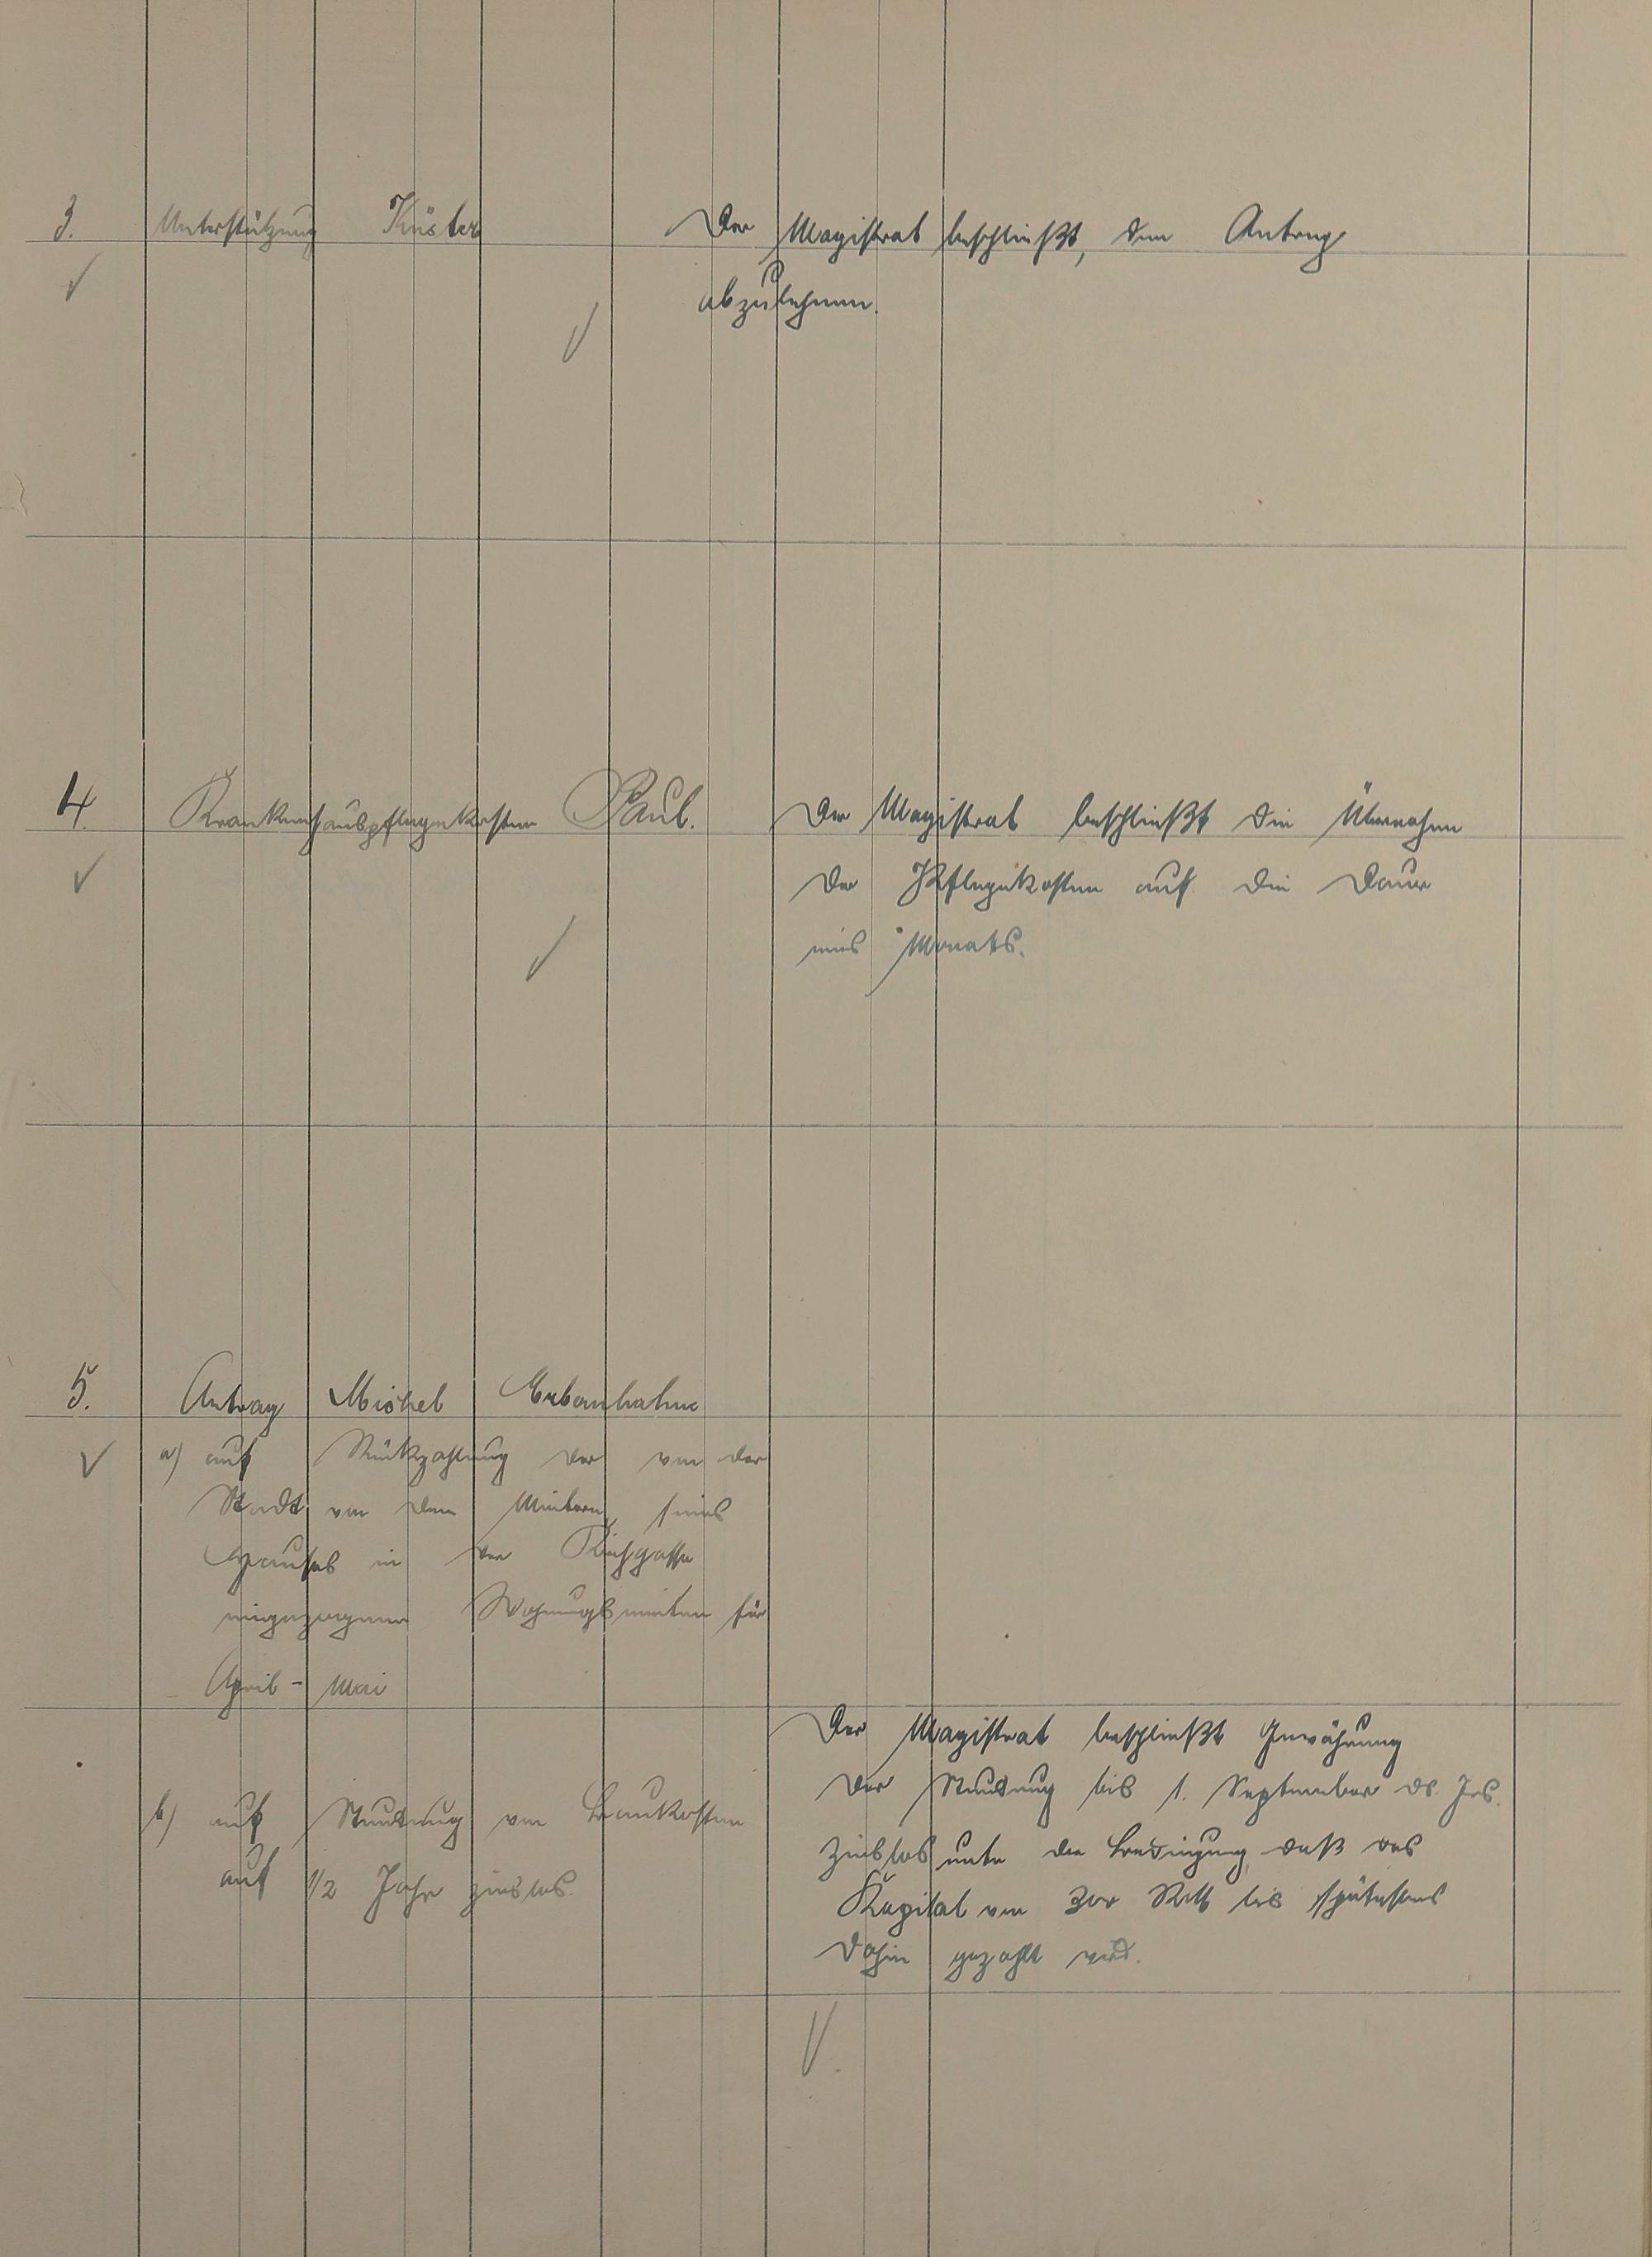 3. Unterstützung Küster
Der Magistrat beschließt, den Antrag
abzulehnen.
4. Krankenhauspflegekosten Paul.
Der Magistrat beschließt die Übernahme
der Pflegekosten auf die Dauer
eines Monats.
5. Antrag Michel
a) auf Rückzahlung der von der
Stadt von den Mietern seines
Hauses in der
eingezogenen Wohnungsmieten für
April - Mai
b) auf Stundung von Baukosten
auf 1/2 Jahr zinslos.
Der Magistrat beschließt Gewährung
der Stundung bis 1. September ds. Jrs.
zinslos unter der Bedingung daß das
Kapital von 300 bis spätestens
dahin gezahlt wird.